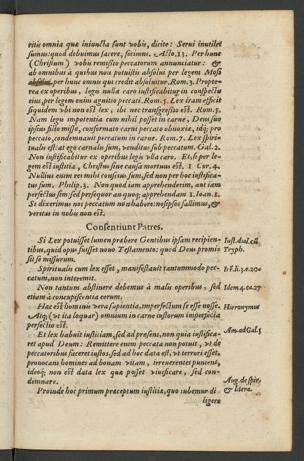 ritis omnia quæ iniuncta sunt vobis, dicite: Serui inutiles
sumus: quod debuimus facere, fecimus. Acto. 13. Per hunc
(Christum) vobis remissio peccatorum annunciatur: &
ab omnibus à quibus non potuistis absolui per legem Mosi
per hunc omnis qui credit absoluitur. Rom. 3. Propte-
rea ex operibus, legis nulla caro iustificabitur in conspectu
eius, per legem enim agnitio peccati. Rom. 5. Lex iram efficit
siquidem vbi non est lex, ibi nec transgressio est. Rom. 3.
Nam legu impotentia cum nihil posset in carne, Deus suo
ipsius filio misso, conformato carni peccato obnoxiæ, idque pro
peccato, condemnauit peccatum in carne. Rom. 7. Lex spiri-
tualis est: at ego carnalis sum, venditus sub peccatum. Gal. 2.
Non iustificabitur ex operibus legis vlla caro. Et, si per le-
gem est iustitia, Christus sine causa mortuus est. 1. Cor. 4.
Nullius enim rei mihi conscius sum, sed non per hoc iustifica-
tus sum. Philip. 3. Non quod iam apprehenderim, aut iam
perfectus sim: sed persequor an quoque apprehendam. 1. Ioan. 1.
Si dixerimus nos peccatum no habere: nosipsos fallimus, &
veritas in nobis non est.
Consentiunt Patres.
Si Lex potuisset lumen præbere Gentibus ipsam recipien-
tibus, quid opus fuisset nouo Testamento: quod Deus promi-
sit se missurum.
Iust. dial. cū
Tryph.
Spiritualis cum lex esset, manifestauit tantummodo pec-
catum, non interemit.
Ir. l. 3. c. 20
Non tantum abstinere debemus à malis operibus, sed
etiam à concupiscentia eorum.
Idem 4. ca. 27
Hæc est hominis vera sapientia, imperfectum se esse nosse.
Atque (vt ita loquar) omnium in carne iustorum imperfecta
perfectio est.
Hieronymus
Et lex habuit iusticiam, sed ad præsens, non quia iustifica-
ret apud Deum: Remittere enim peccata non potuit, vt de
peccatoribus faceret iustos, sed ad hoc data est, vt terrori esset,
prouocans homines ad bonam vitam, irreuerentes puniens,
ideoque non est data lex quæ posset viuificare, sed con-
demnare.
Am. ad Gal. 3
Proinde hoc primum præceptum iustitiæ, quo iubemur di-
ligere
Aug. de spir.
& litera.